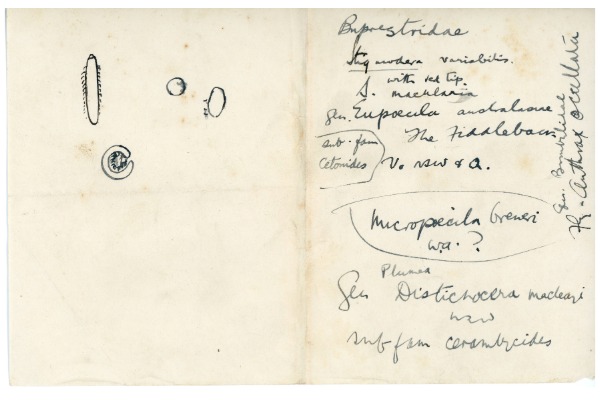 Buprestridae
Stigmodera variabilis.
with red tip.
S. macularia
gen. Eupoecila australasiae
The Fiddleback
sub-fam
Cetonides
V. NSW & Q.
Micropoecila breweri
W.A. ?
Plumed
Gen Distichocera macleayi
NSW
sub fam cerambycides
Gen. Bombiliidae
Fly - Anthrax ocellata